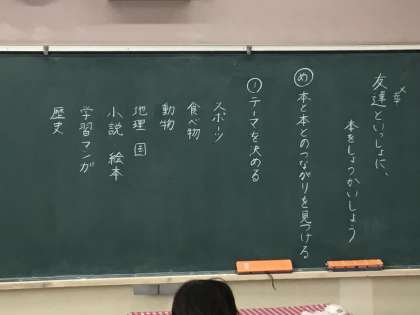 友達といっしょに、
本をしょうかいしよう
め 本と本とのつながりを見つける
① テーマを決める
スポーツ
食べ物
動物
地理 国
小説 絵本
学習マンガ
歴史